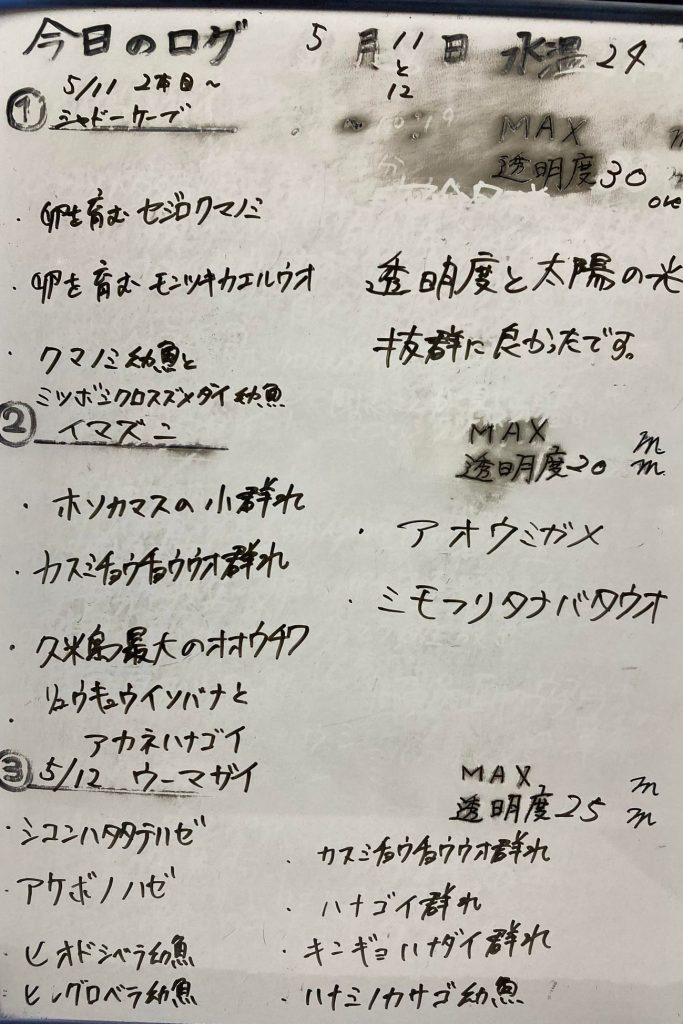 今日のログ 5月11日 水温24
と
12
5/11 2本目~
① シャドーケーブ
MAX
透明度30
ove
・卵を育む セジロクマノミ
・卵を育む モンツキカエルウオ
・クマノミ幼魚と
ミツボシクロスズメダイ幼魚
透明度と太陽の光
抜群に良かったです。
② イマズニ
MAX m
透明度20 m
・ホソカマスの小群れ
・カスミチョウチョウウオ群れ
・久米島最大のオオウチワ
・リュウキュウイソバナと
アカネハナゴイ
・アオウミガメ
・ミモフリタナバタウオ
③ 5/12 ウーマガイ
MAX m
透明度25 m
・シコンハタタテハゼ
・アケボノハゼ
・ヒオドシベラ幼魚
・ヒレグロベラ幼魚
・カスミチョウチョウウオ群れ
・ハナゴイ群れ
・キンギョハナダイ群れ
・ハナミノカサゴ幼魚